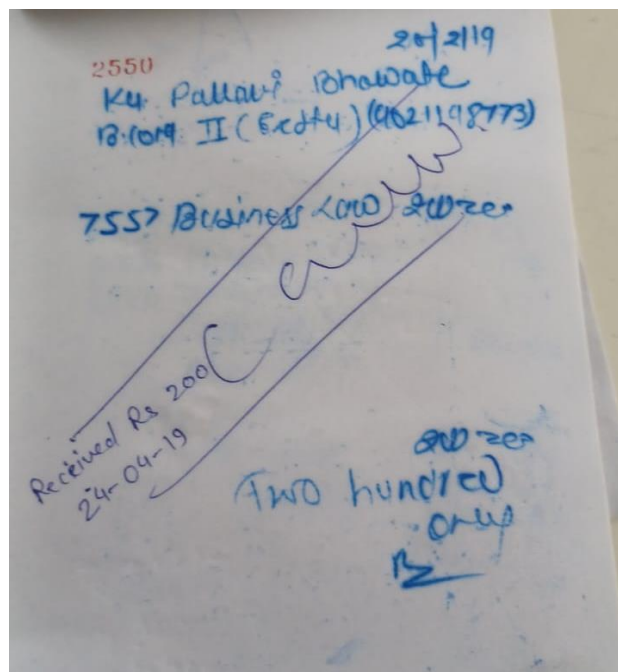 2550
20/2/19
Ku. Pallavi Bhawate
B.com II (Extty) (9621198773)
7557 Business Law 200=00
Received Rs 200
24-04-19
200=00
Two hundred
only